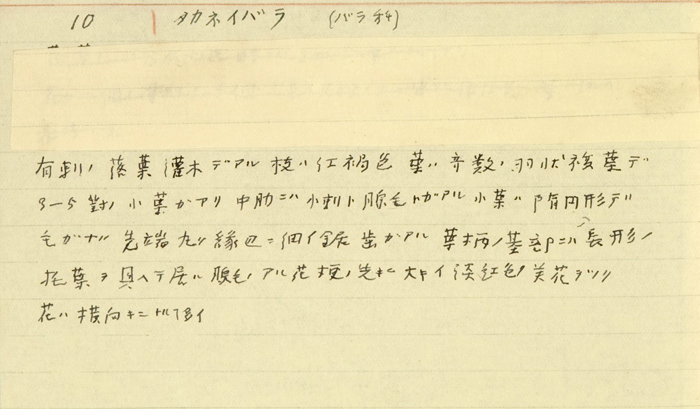 10 タカネイバラ (バラ科)
有刺ノ落葉灌木デアル枝ハ紅褐色葉ハ奇数ノ羽状複葉デ
3-5対ノ小葉ガアリ中肋ニハ小刺ト腺毛トガアル小葉ハ楕円形デ
毛ガナク先端丸ク縁辺ニ細イ鋸歯ガアル葉柄ノ基部ニハ長形ノ
托葉ヲ具ヘテ居ル腺毛ノアル花梗ノ先ニ大キイ淡紅色ノ美花ヲツケ
花ハ横向キニ